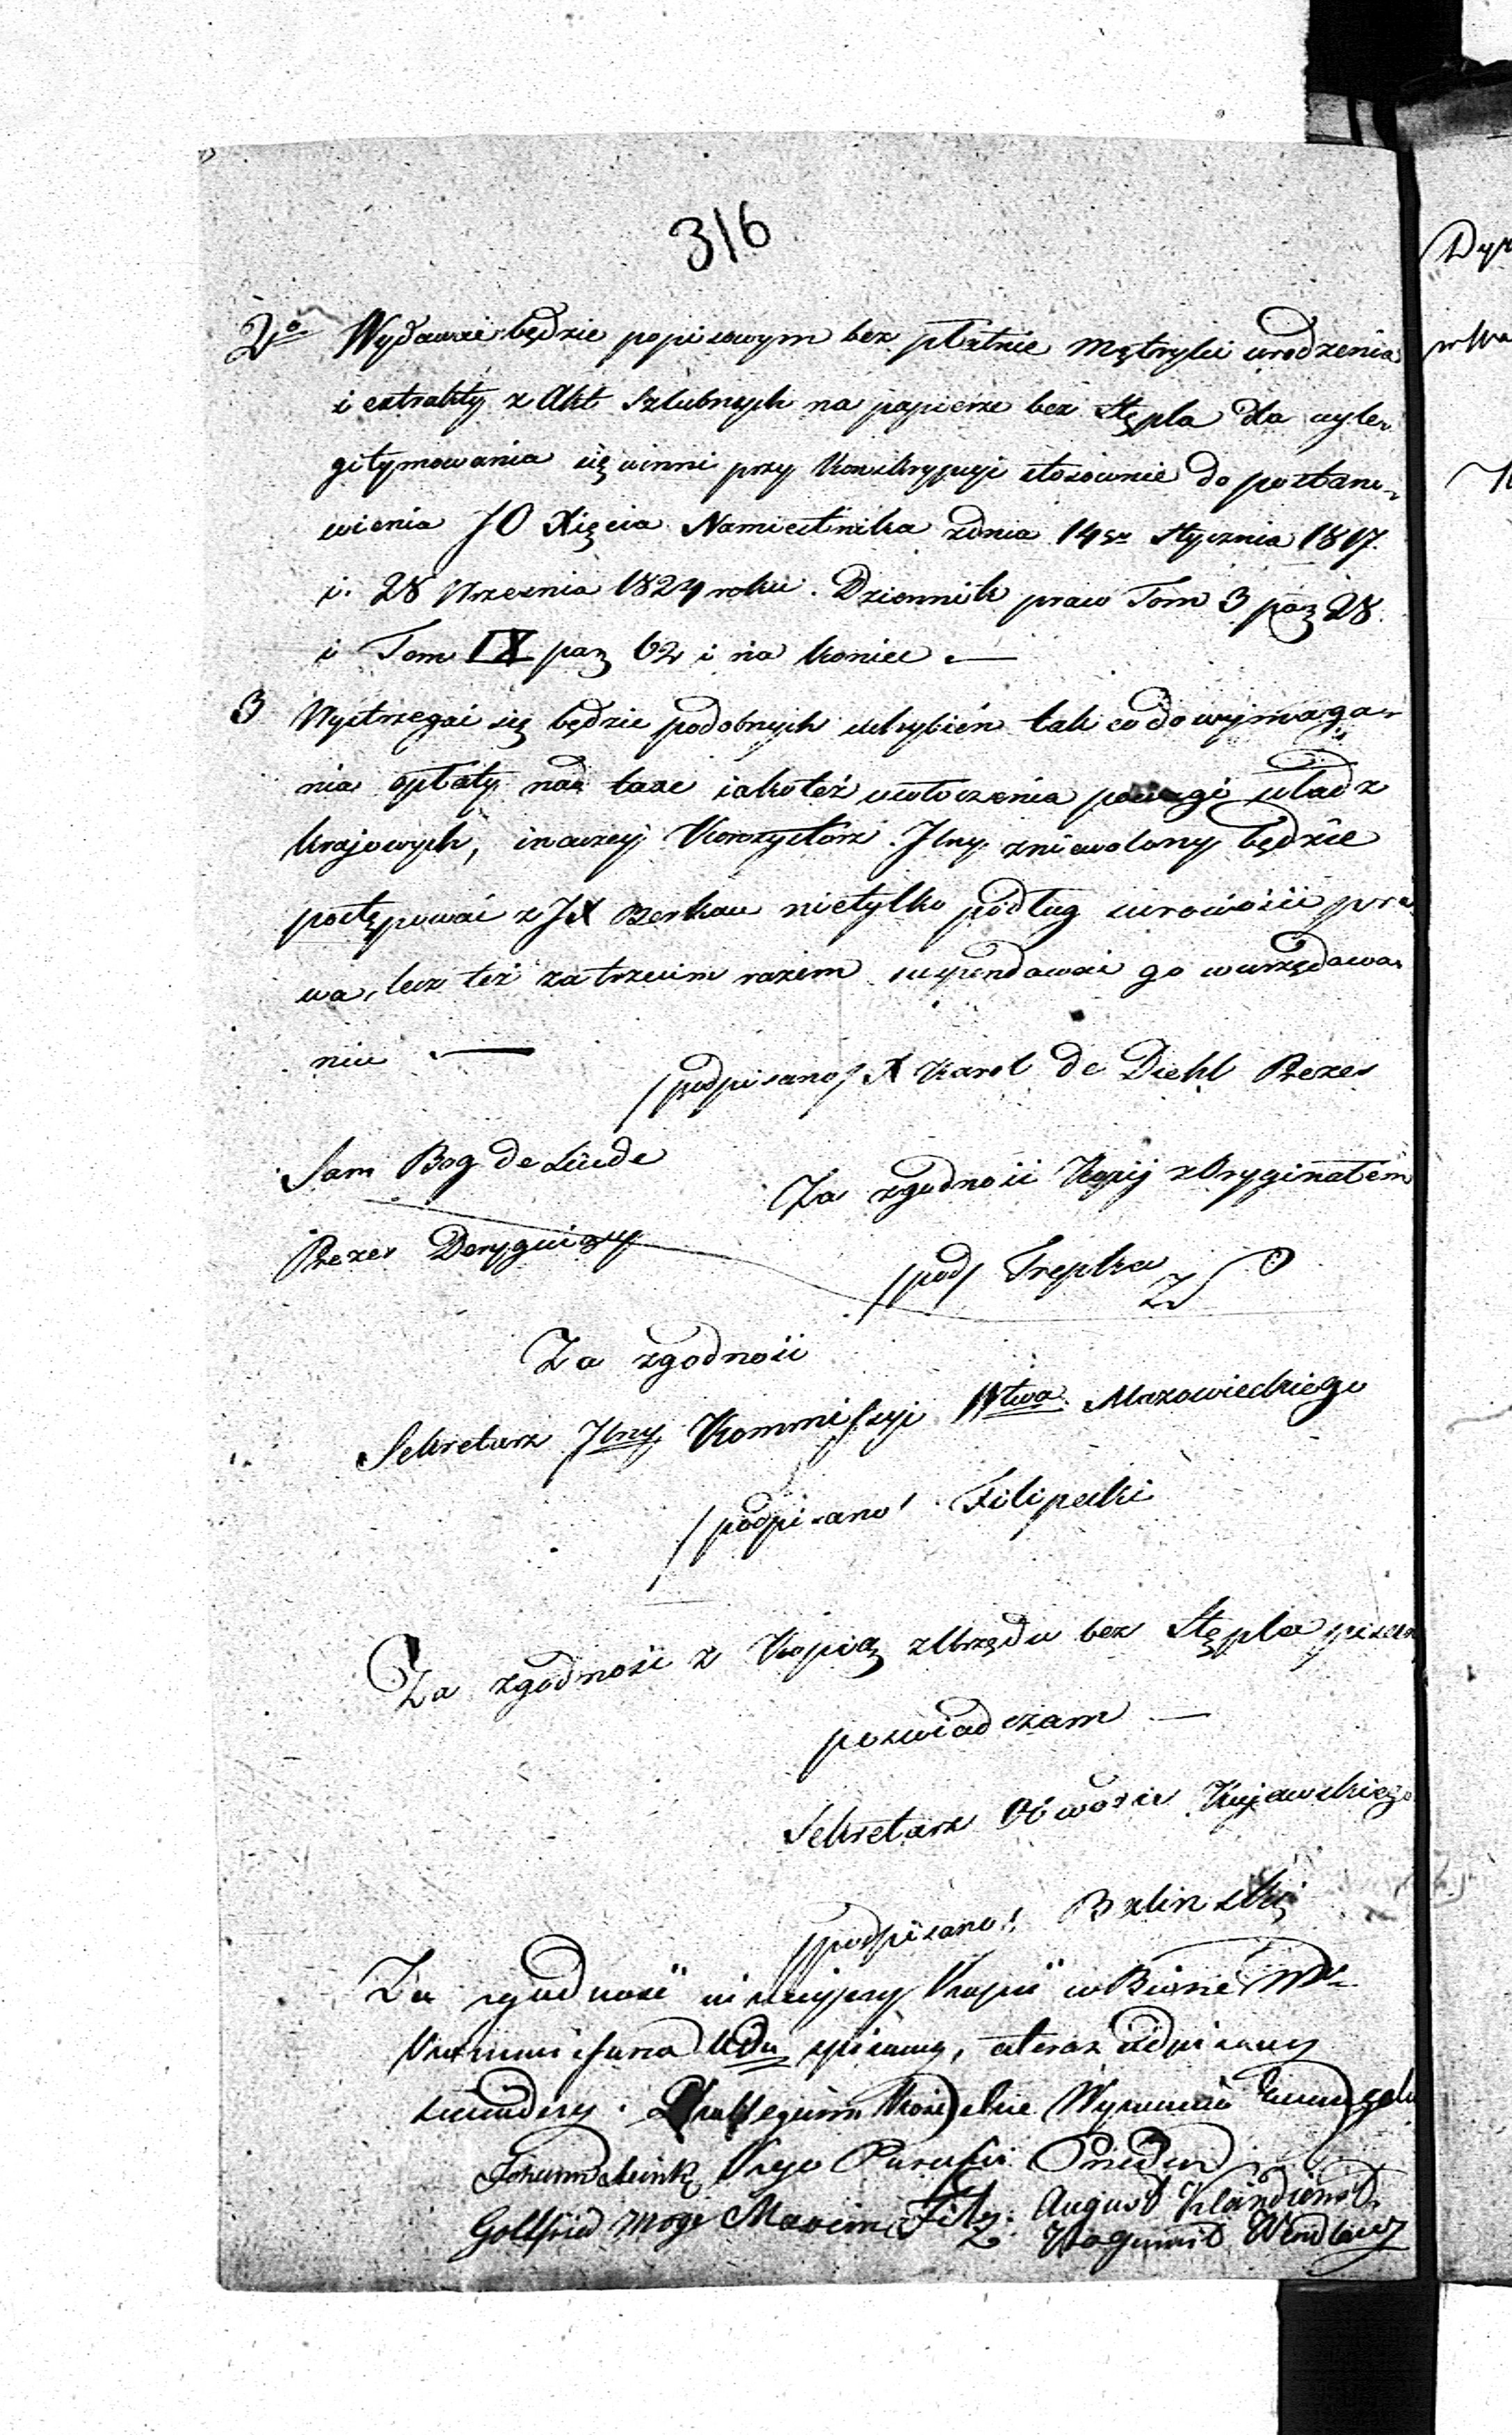 316
2o Wydawać będzie popisowym bez płatnie Mętryki urodzenia
i extrakty z Akt Szlubnych na papierze bez Stępla dla wyle-
gitymowania się winni przy Konskrypcyi stosownie do postano-
wienia JO Xięcia Namiestnika zdnia 14go Stycznia 1817.
i. 28 Września 1824 roku. Dziennik praw Tom 3 pag 28.
i Tom IX pag 62 i na koniec. —
3 Wystrzegać się będzie podobnych uchybień tak co do wymaga-
nia opłaty nad taxe iakoteż uwłoczenia powagi władz
krajowych, inaczej Konsystorz Jlny zniewolony będzie
postępować z JX Berkau nietylko podług surowości pra
wa, lecz też za trzecim razem suspendować go w urzędowa-
niu. —
/podpisano/ X Karol de Diehl Prezes
Sam Bog de Linde
Za zgodność Kopij z Oryginałem
Prezes Dyrygujący
/pod/ Trepka
Za zgodność
Sekretarz Jlny Kommissyi Wtwa Mazowieckiego
/podpisano/ Filipecki
Za zgodność z Kopią z Urzędu bez Stępla
poswiadczam —
Sekretarz Obwodu Kujawskiego
/podpisano/ Balinski
Za zgodność niniejszey Kopii w Biórze
Kommissarza spisaney, a teraz
Kollegium Kościelne
Gottfried August
Bogumił Wendland